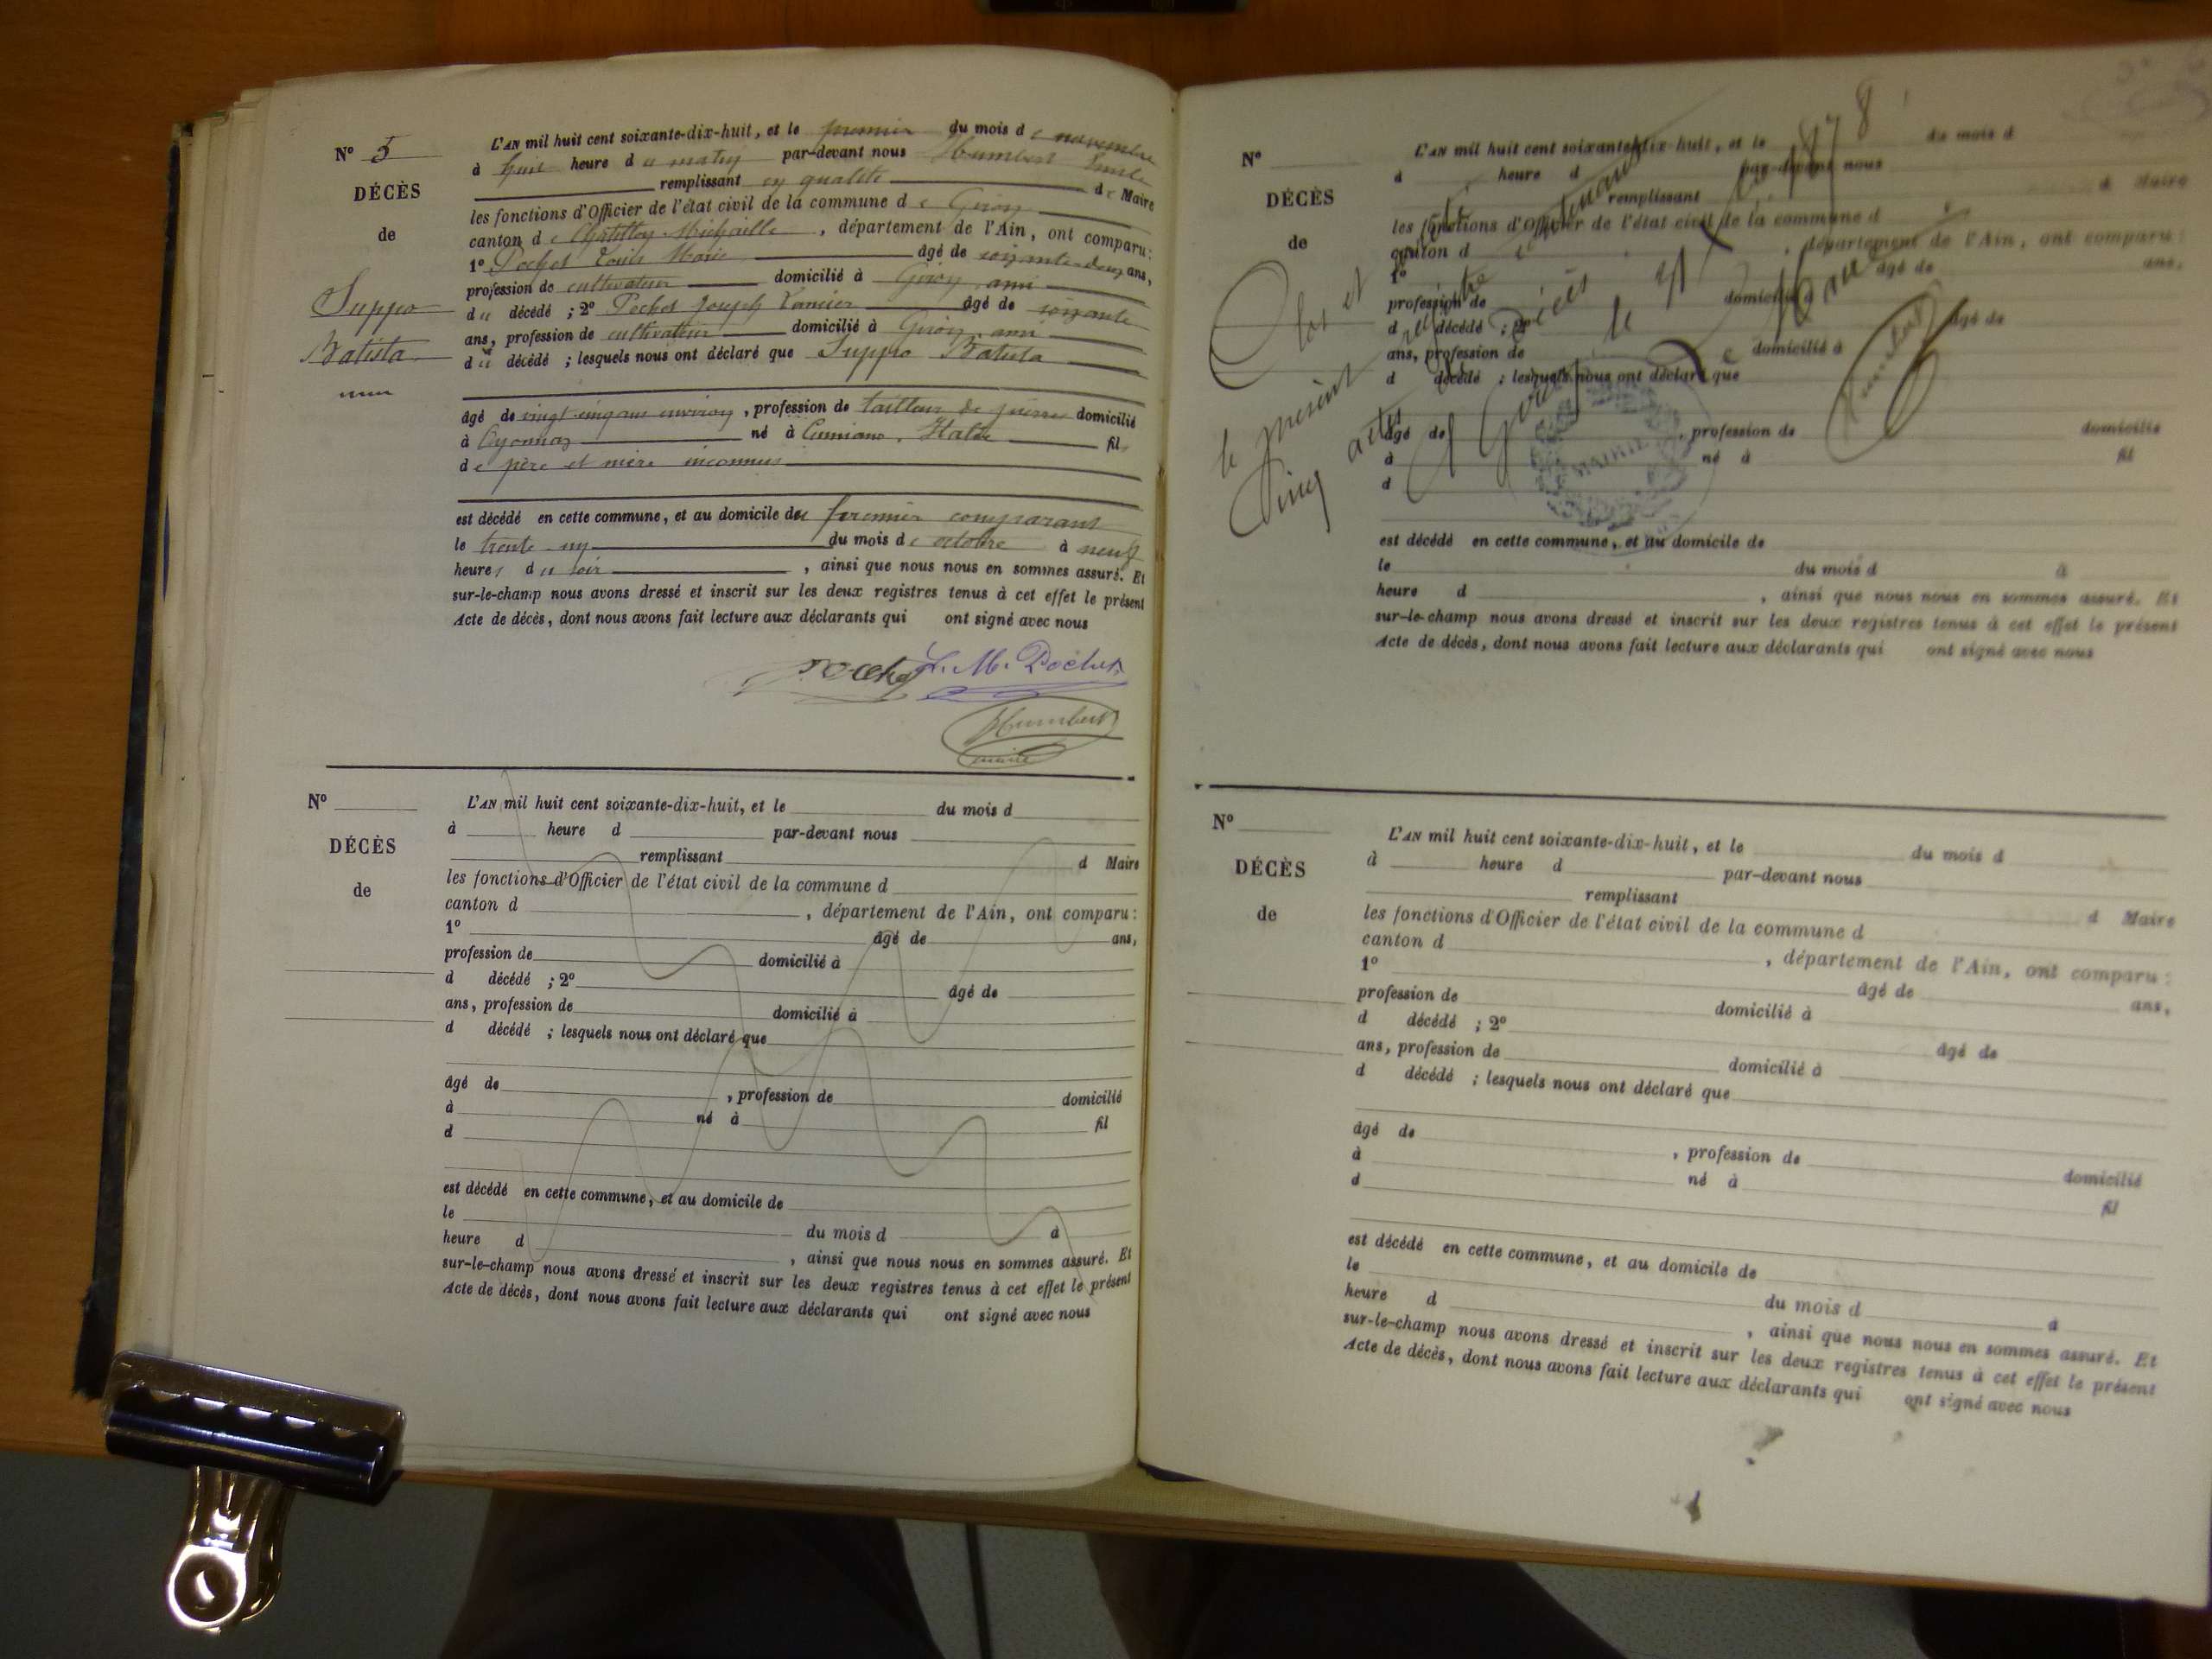 Nº 5
DÉCÈS
de
Suppo
Batista
L'AN mil huit cent soixante-dix-huit, et le premier du mois de novembre
à huit heure du matin par-devant nous Humbert Emile
remplissant en qualité de Maire
les fonctions d'Officier de l'état civil de la commune de Giron
canton de Châtillon Michaille, département de l'Ain, ont comparu:
1º Pochet Louis Marie âgé de soixante-deux ans,
profession de cultivateur domicilié à Giron, ami
du décédé ; 2º Pochet Joseph âgé de soixante
ans, profession de cultivateur domicilié à Giron, ami
du décédé ; lesquels nous ont déclaré que Suppo Batista
âgé de vingt cinq ans environ, profession de tailleur de pierres domicilié
à Oyonnax né à Cumiana, Italie fils
de père et mère inconnus
est décédé en cette commune, et au domicile du premier comparant
le trente un du mois de octobre à neuf
heures du soir, ainsi que nous nous en sommes assuré. Et
sur-le-champ nous avons dressé et inscrit sur les deux registres tenus à cet effet le présent
Acte de décès, dont nous avons fait lecture aux déclarants qui ont signé avec nous
L. M. Pochet
Humbert
maire
Nº
DÉCÈS
de
L'AN mil huit cent soixante-dix-huit, et le du mois d
à heure d par-devant nous
remplissant d Maire
les fonctions d'Officier de l'état civil de la commune d
canton d , département de l'Ain, ont comparu:
1º âgé de ans,
profession de domicilié à
d décédé ; 2º âgé de
ans, profession de domicilié à
d décédé ; lesquels nous ont déclaré que
âgé de , profession de domicilié
à né à fil
d
est décédé en cette commune, et au domicile de
le du mois d à
heure d , ainsi que nous nous en sommes assuré. Et
sur-le-champ nous avons dressé et inscrit sur les deux registres tenus à cet effet le présent
Acte de décès, dont nous avons fait lecture aux déclarants qui ont signé avec nous
Nº
DÉCÈS
de
L'AN mil huit cent soixante-dix-huit, et le du mois d
à heure d par-devant nous
remplissant d Maire
les fonctions d'Officier de l'état civil de la commune d
canton d , département de l'Ain, ont comparu:
1º âgé de ans,
profession de domicilié à
d décédé ; 2º âgé de
ans, profession de domicilié à
d décédé ; lesquels nous ont déclaré que
âgé de , profession de domicilié
à né à fil
d
est décédé en cette commune, et au domicile de
le du mois d à
heure d , ainsi que nous nous en sommes assuré. Et
sur-le-champ nous avons dressé et inscrit sur les deux registres tenus à cet effet le présent
Acte de décès, dont nous avons fait lecture aux déclarants qui ont signé avec nous
Clos et
le présent registre
Cinq actes décès
A Giron, le 31 Xbre
1878
Humbert
MAIRIE
Nº
DÉCÈS
de
L'AN mil huit cent soixante-dix-huit, et le du mois d
à heure d par-devant nous
remplissant d Maire
les fonctions d'Officier de l'état civil de la commune d
canton d , département de l'Ain, ont comparu:
1º âgé de ans,
profession de domicilié à
d décédé ; 2º âgé de
ans, profession de domicilié à
d décédé ; lesquels nous ont déclaré que
âgé de , profession de domicilié
à né à fil
d
est décédé en cette commune, et au domicile de
le du mois d à
heure d , ainsi que nous nous en sommes assuré. Et
sur-le-champ nous avons dressé et inscrit sur les deux registres tenus à cet effet le présent
Acte de décès, dont nous avons fait lecture aux déclarants qui ont signé avec nous